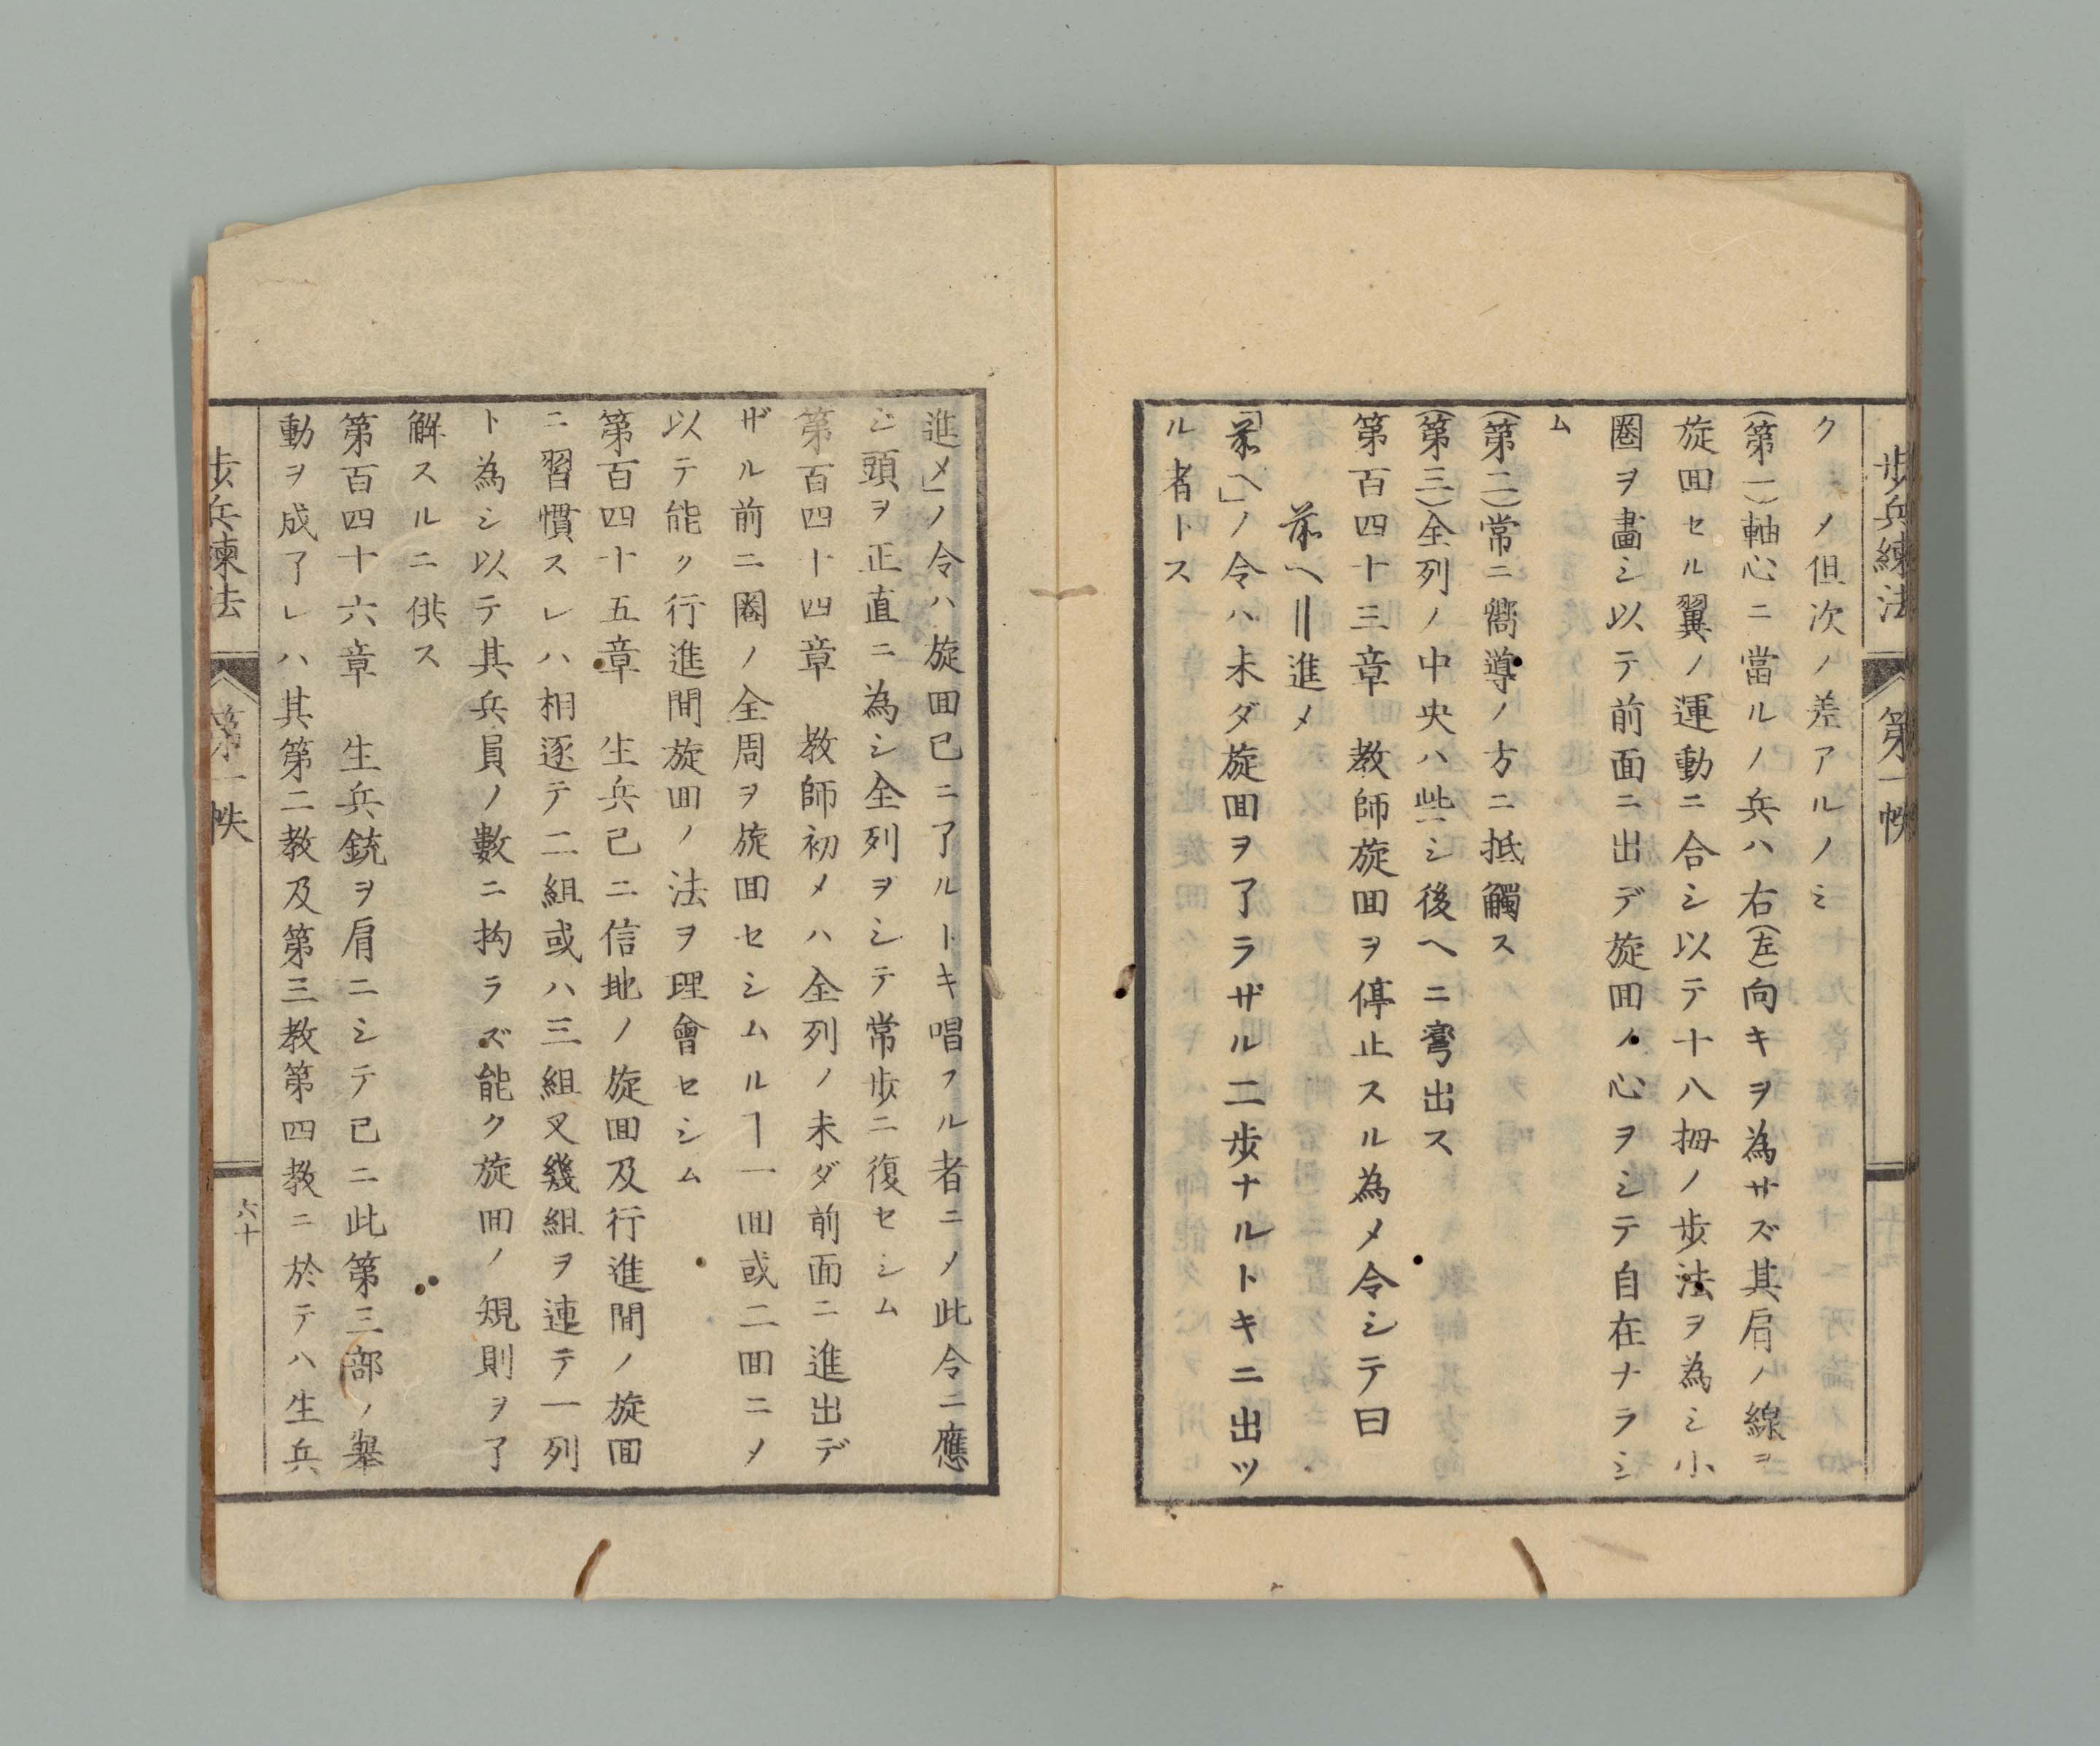 歩兵練法　第一帙
クメ但次ノ差アルノミ
(第一)軸心ニ當ルノ兵ハ右(左)向キヲ為サズ其肩ノ線ヲ
旋回セル翼ノ運動ニ合シ以テ十八拇ノ歩法ヲ為シ小
圏ヲ畫シ以テ前面ニ出デ旋回ノ心ヲシテ自在ナラシ
ム
(第二)常ニ嚮導ノ方ニ抵觸ス
(第三)全列ノ中央ハ些シ後ヘニ彎出ス
第百四十三章　教師旋回ヲ停止スル為メ令シテ曰
前ヘ‖進メ
「前ヘ」ノ令ハ未ダ旋回ヲ了ラザル二歩ナルトキニ出ツ
ル者トス
進メ」ノ令ハ旋回已ニ了ルトキ唱フル者ニメ此令ニ應
シ頭ヲ正直ニ為シ全列ヲシテ常歩ニ復セシム
第百四十四章　教師初メハ全列ノ未ダ前面ニ進出デ
ザル前ニ圏ノ全周ヲ旋回セシムルヿ一回或二回ニメ
以テ能ク行進間旋回ノ法ヲ理會セシム
第百四十五章　生兵已ニ信地ノ旋回及行進間ノ旋回
ニ習慣スレハ相逐テ二組或ハ三組又幾組ヲ連テ一列
ト為シ以テ其兵員ノ數ニ拘ラズ能ク旋回ノ規則ヲ了
解スルニ供ス
第百四十六章　生兵銃ヲ肩ニシテ已ニ此第三部ノ擧
動ヲ成了レハ其第二教及第三教第四教ニ於テハ生兵
歩兵練法　第一帙　六十